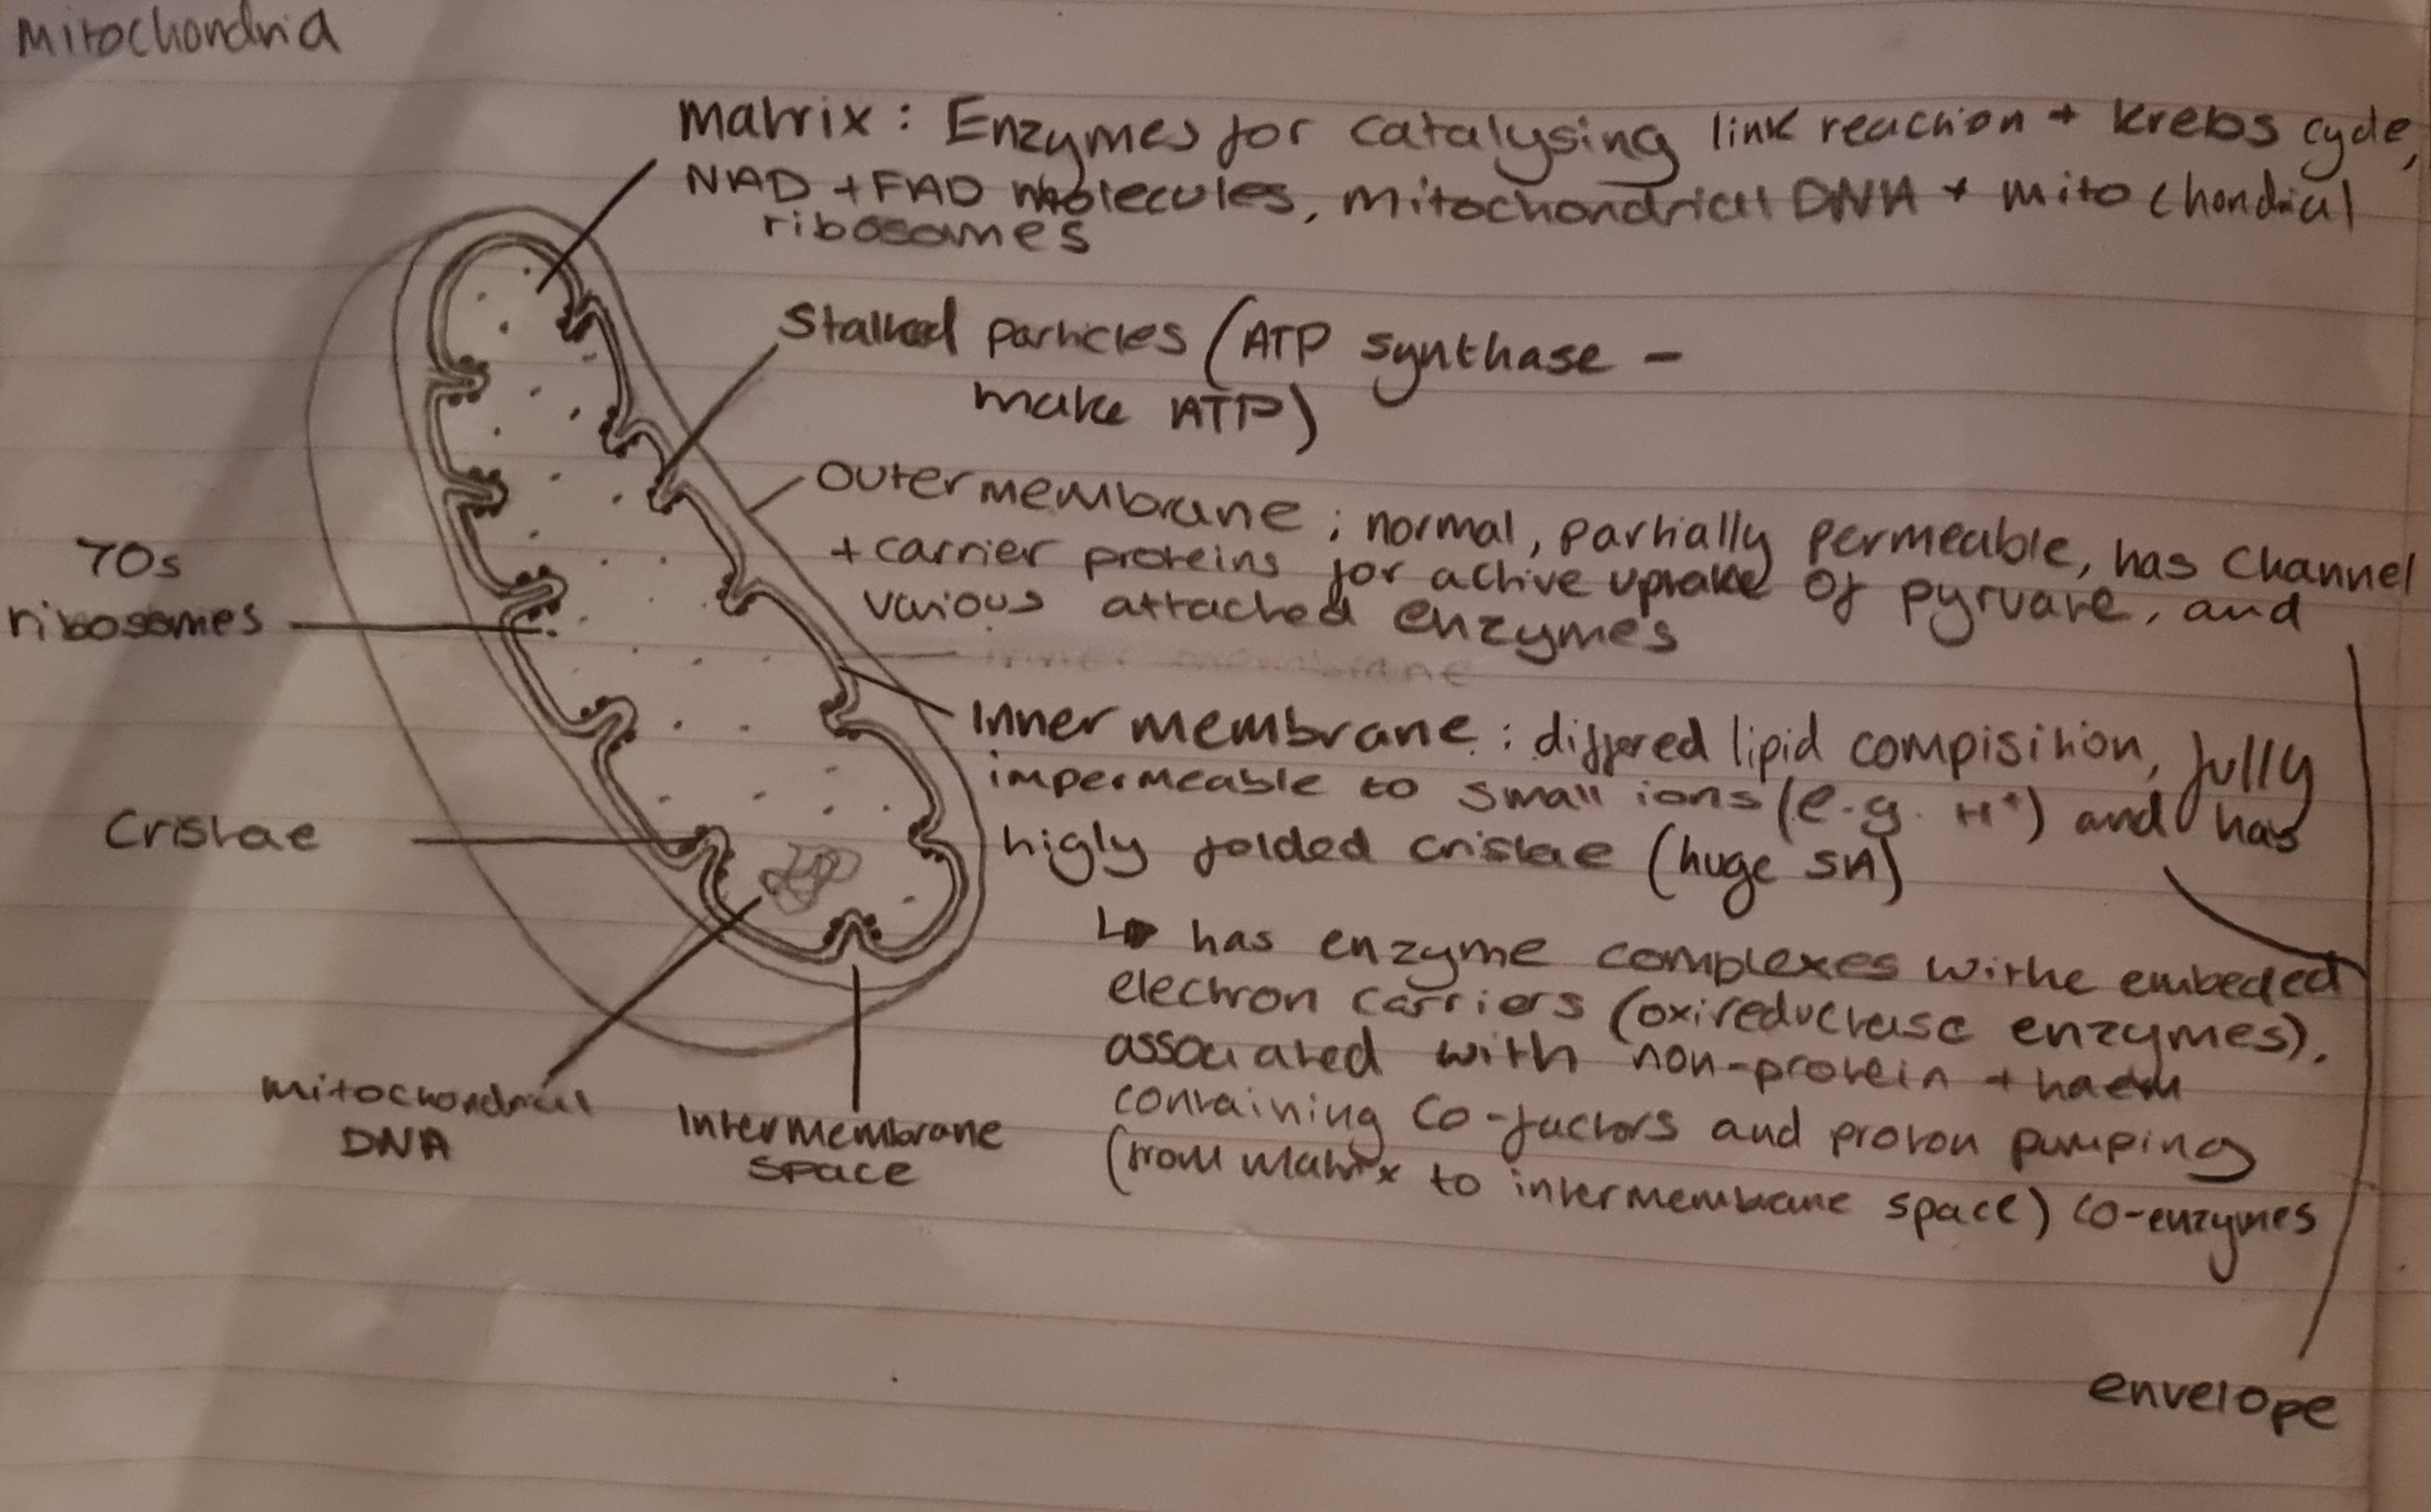 Mitochondria
Matrix : Enzymes for catalysing link reaction + krebs cycle,
NAD + FAD molecules, mitochondrial DNA + mitochondrial
ribosomes
Stalked particles (ATP synthase -
make ATP)
Outer membrane ; normal, partially permeable, has channel
+ carrier proteins for active uptake of pyruvate, and
various attached enzymes
inner membrane
70s
ribosomes
Inner membrane : differed lipid compisition, fully
impermeable to small ions (e.g. H+) and has
higly folded cristae (huge SA)
Cristae
↳ has enzyme complexes withe embeded
electron carriers (oxireductase enzymes),
associated with non-protein + haem
containing co-factors and proton pumping
(from matrix to intermembrane space) co-enzymes
mitochondrial
DNA
Intermembrane
space
envelope